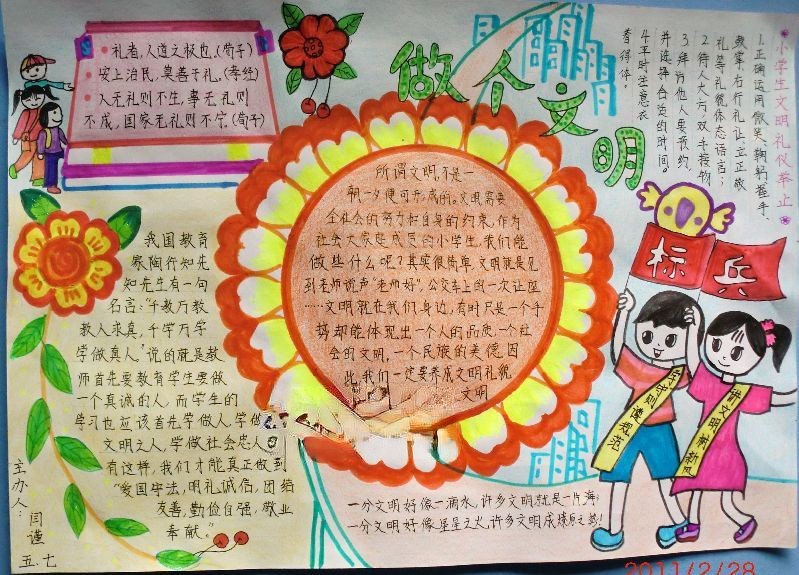 做个文明
礼者,人道之极也.(荀子)
安上治民,莫善于礼.(孝经)
人无礼则不生,事无礼则
不成,国家无礼则不宁.(荀子)
小学生文明礼仪举止
1.正确运用微笑、鞠躬、握手、
鼓掌、右行礼让、立正敬
礼等礼貌体态语言;
2.待人大方,双手接物
3.拜访他人要预约,
并选择合适的时间。
4.平时注意衣
着得体。
所谓文明,不是一
朝一夕便可形成的。文明需要
全社会的努力和自身的约束,作为
社会大家庭成员的小学生,我们能
做些什么呢?其实很简单,文明就是见
到老师说声“老师好”,公交车上的一次让座
……文明就在我们身边,有时只是一个手
势却能体现出一个人的品质,一个社
会的文明,一个民族的美德,因
此,我们一定要养成文明礼貌
文明
我国教育
家陶行知先
知先生有一句
名言:“千教万教
教人求真,千学万学
学做真人”说的就是教
师首先要教育学生要做
一个真诚的人,而学生的
学习也应该首先学做人,学做
文明之人,学做社会忠人
有这样,我们才能真正做到
“爱国守法,明礼诚信,团结
友善,勤俭自强,敬业
奉献。”
主办人:
闫谨
五.七
标兵
守守则遵规范
讲文明树新风
一分文明好像一滴水,许多文明就是一片海;
一分文明好像星星之火,许多文明成燎原之势!
2011/2/28